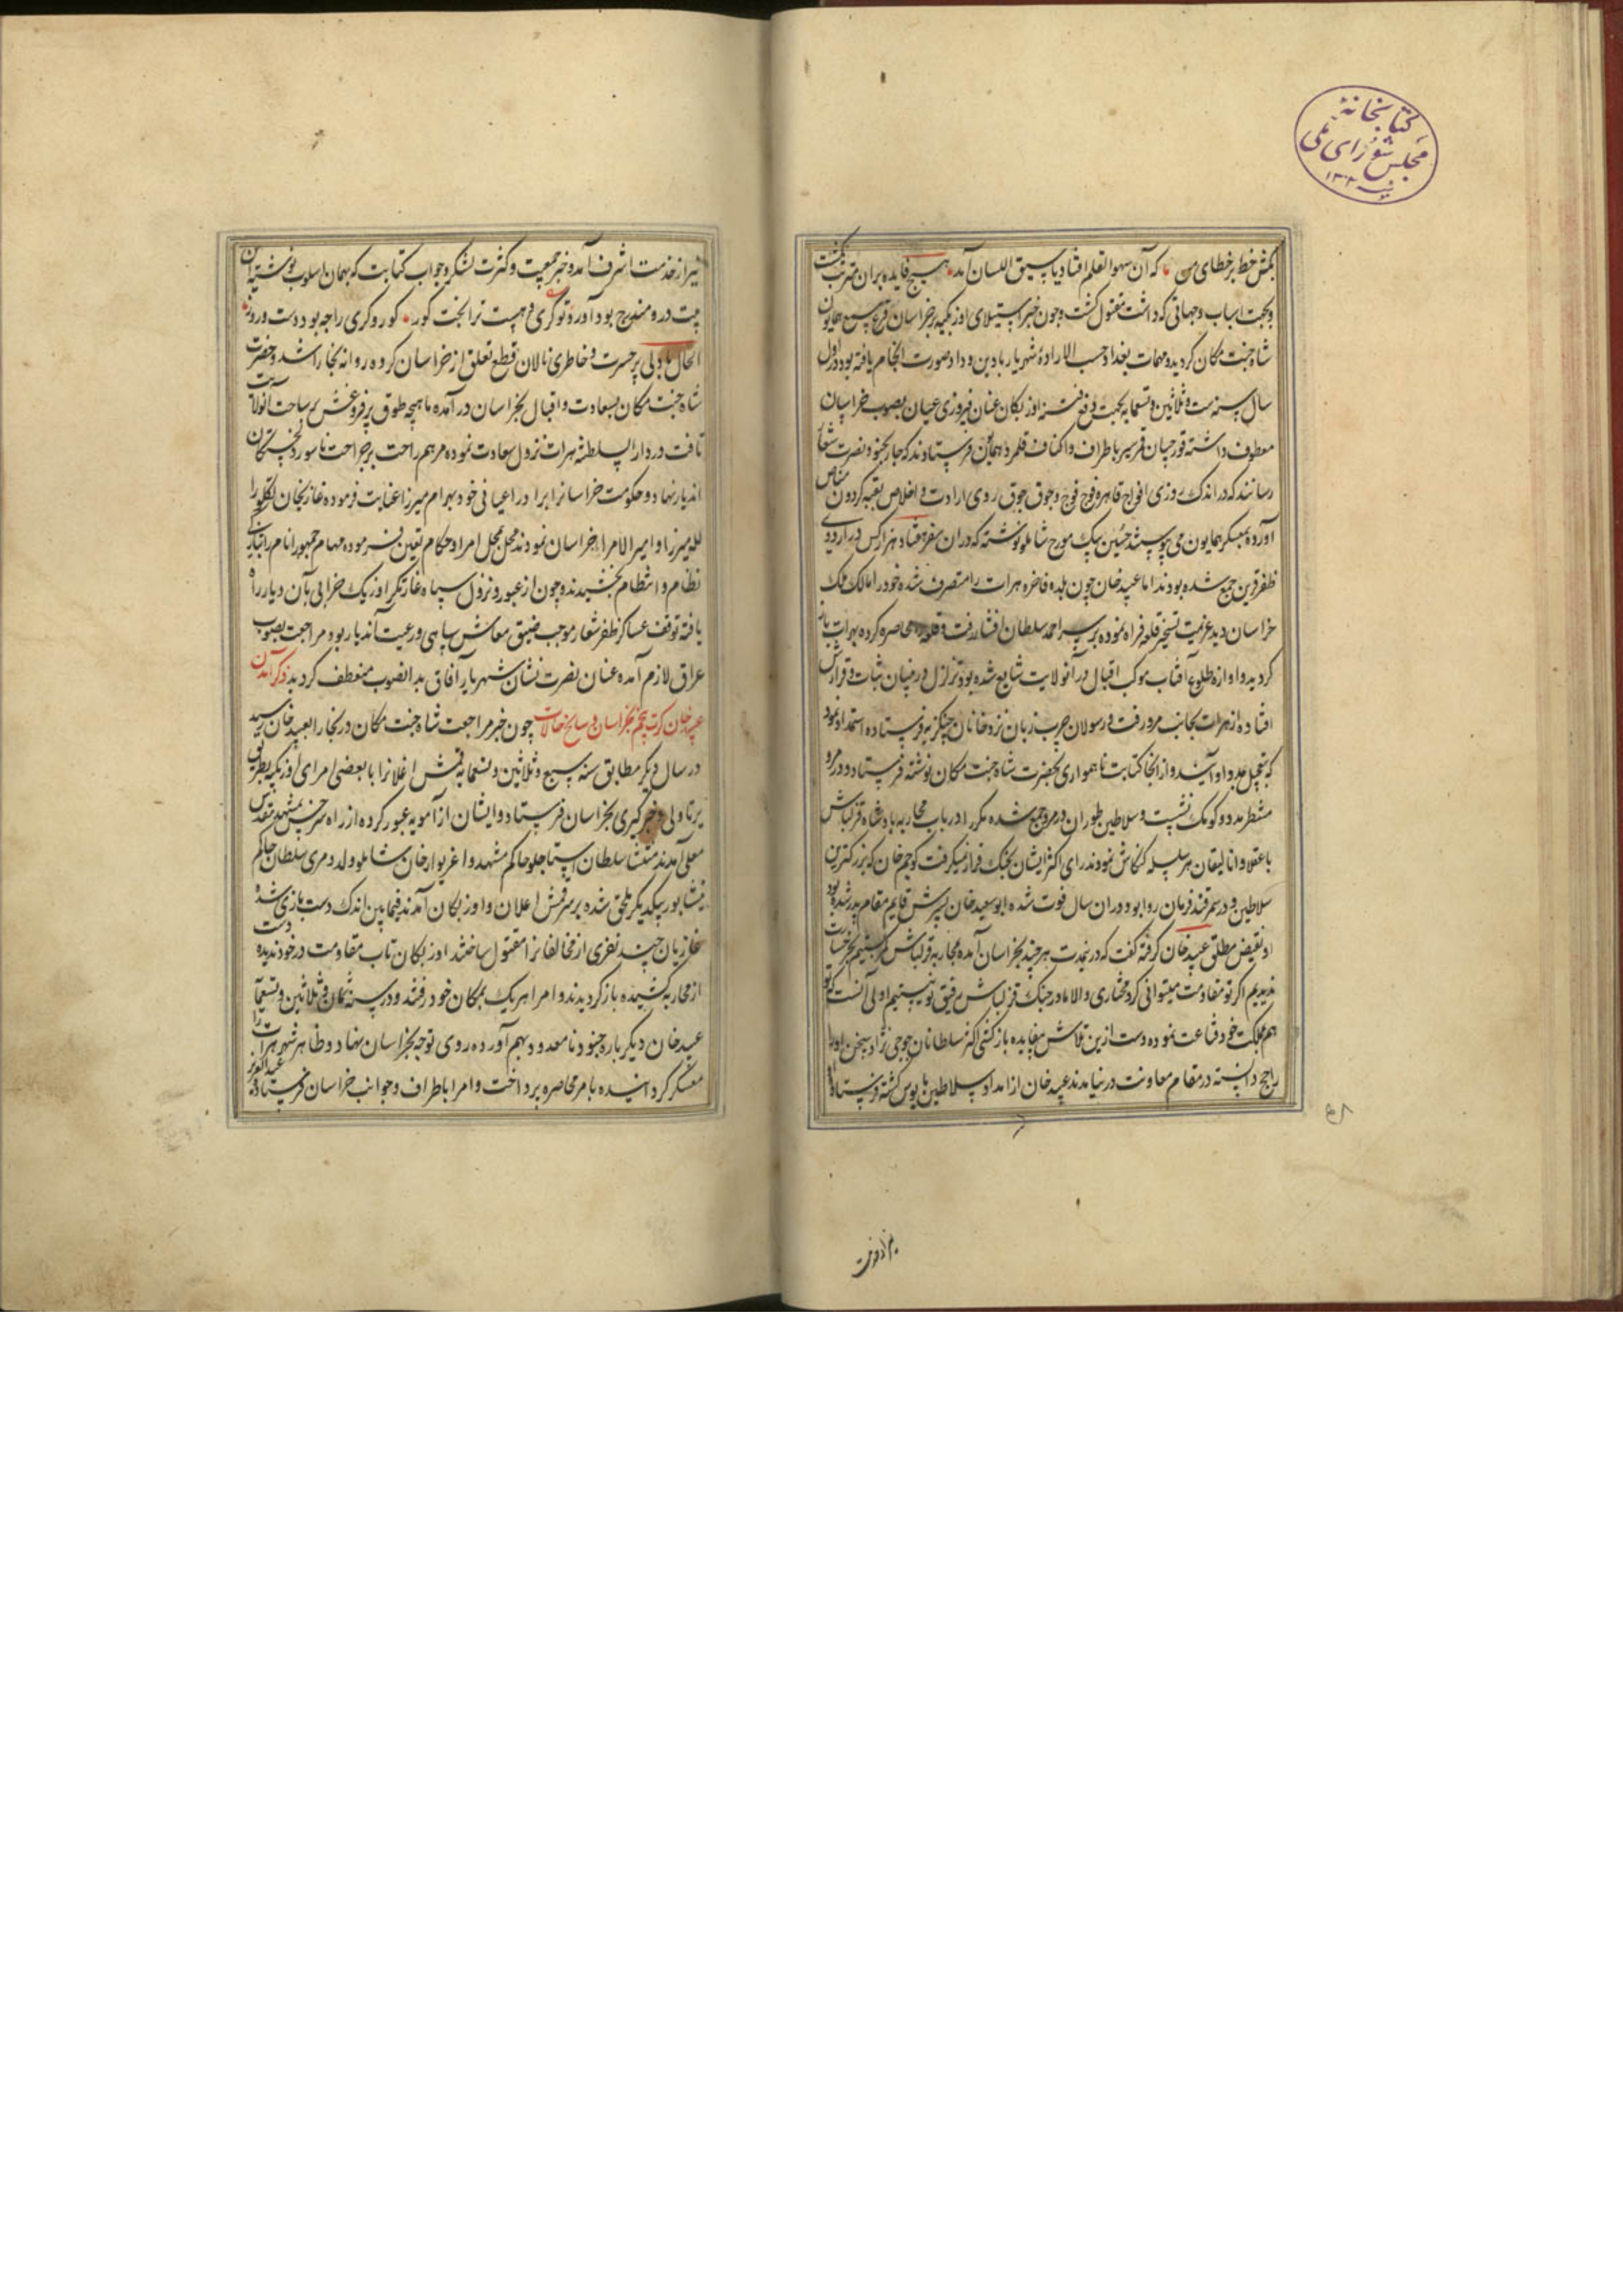 کتابخانهٔ
مجلس شورای ملی
بکش خط بر خطای من که آن سهو القلم افتاد یا سبق اللسان آمد هیچ فایده بران مترتب نکشت
و بجهت اسباب و جهاتی که داشت مقتول کشت و چون خبر استیلای اوزبکیه بر خراسان بمسامع همایون
شاه جنت مکان کردید و مهمات بغداد حسب الاراده شهریار با دین و داد صورت انجام یافته بود در اول
سال سنه ست و ثلاثین و تسعمایه بجهت دفع فتنه اوزبکان عنان فیروزی عیان بصوب خراسان
معطوف داشته قورچیان قمر سیر باطراف و اکناف قلمرو همایون فرستادند که جار بجنود نصرت شعار
رسانند که در اندک روزی افواج قاهره فوج فوج و جوق جوق روی ارادت و اخلاص
آورده بمعسکر همایون می پیوستند حسین بیک مورخ شاملو نوشته که دران سفر هفتاد هزار کس در اردوی
ظفر قرین جمع شده بودند اما عبید خان چون بلده فاخره هرات را متصرف شده خود را مالک ملک
خراسان دید عزیمت تسخیر قلعه فراه نموده بر سر احمد سلطان افشار رفت و قلعه را محاصره کرده بهرات باز
کردید و آوازه طلوع آفتاب موکب اقبال در آنولایت شایع شده بود تزلزل در بنیان ثبات و قرارش
افتاده از هرات بجانب مرو رفت و رسولان چرب زبان نزد خانان چنکزیه فرستاده استمداد نمود
که بتعجیل بمدد او آیند و از انجا کتابت ناهمواری بحضرت شاه جنت مکان نوشته فرستاد و در مرو
منتظر مدد و کومک نشست و سلاطین توران در مرو جمع شده مکرر در باب محاربه پادشاه قزلباش
با عقلا و اتالیقان هر سلسله کنکاش نمودند رای اکثر ایشان بجنک قرار نمیکرفت کوچم خان که بزرکترین
سلاطین و در سمرقند فرمان روا بود دران سال فوت شده ابوسعید خان پسرش قایم مقام پدر شده بود
او نقیض مطلق عبید خان کرفته کفت که درینمدت هر چند بخراسان آمده محاربه قزلباش کردیم بجز خسارت
ندیدیم اکر تو مقاومت میتوانی کرد مختاری و الا ما در جنک قزلباش رفیق تو نیستیم اولی آنست که تو
هم بمملکت خود قناعت نموده دست ازین تلاش بیفایده باز کشی اکثر سلطانان جوجی نژاد سخن او را
راجح دانسته در مقام معاونت در نیامدند عبید خان از امداد سلاطین مایوس کشته فرستاده
نیز از خدمت اشرف آمد و خبر جمعیت و کثرت لشکر و جواب کتابت که بهمان اسلوب نوشته این
بیت درو مندرج بود آورد تو کری و هست ترا بخت کور کور و کری را چه بود دست و زور
الحال با دلی پر حسرت و خاطری نالان قطع تعلق از خراسان کرده روانه بخارا شد و حضرت
شاه جنت مکان بسعادت و اقبال بخراسان در آمده ماهچه طوق پر فروغش بر ساحت آنولایت
تافت و در دار السلطنه هرات نزول سعادت نموده مرهم راحت بر جراحت ناسور خستکان
آندیار نهاد و حکومت خراسانرا برادر اعیانی خود بهرام میرزا عنایت فرموده غازیخان تکلو را
لله میرزا و امیر الامراء خراسان نمودند و محل بمحل امرا و حکام تعیین فرموده مهام جمهور انام را بتازکی
نظام و انتظام بخشیدند و چون از عبور و نزول سپاه غارتکر اوزبک خرابی بآن دیار راه
یافته توقف عساکر ظفر شعار موجب ضیق معاش سپاهی و رعیت آندیار بود مراجعت بصوب
عراق لازم آمده عنان نصرت نشان شهریار آفاق بدانصوب منعطف کردید ذکر آمدن
عبید خان کرت پنجم بخراسان و سایر حالات چون خبر مراجعت شاه جنت مکان در بخارا بعبید خان رسید
در سال دیکر مطابق سنه سبع و ثلاثین و تسعمایه قمش اغلانرا با بعضی امرای اوزبکیه بطریق
برتاولی و خبر کیری بخراسان فرستاد و ایشان از آمویه عبور کرده از راه سرخس بمشهد مقدس
معلی آمدند منتشا سلطان استاجلو حاکم مشهد و اغزیوار خان شاملو ولد دمری سلطان حاکم
نیشابور بیکدیکر ملحق شده بر سر قمش اغلان و اوزبکان آمدند فیمابین اندک دست بازی شد و
غازیان چند نفری از مخالفانرا مقتول ساختند اوزبکان تاب مقاومت در خود ندیده دست
از محاربه کشیده باز کردیدند و امرا هر یک بمکان خود رفتند و در سنه ثمان و ثلاثین و تسعمایه
عبید خان دیکر باره جنود نامعدود بهم آورده روی توجه بخراسان نهاد و ظاهر شهر هرات را
معسکر کردانیده بامر محاصره پرداخت و امرا باطراف و جوانب خراسان فرستاد و عبدالعزیز